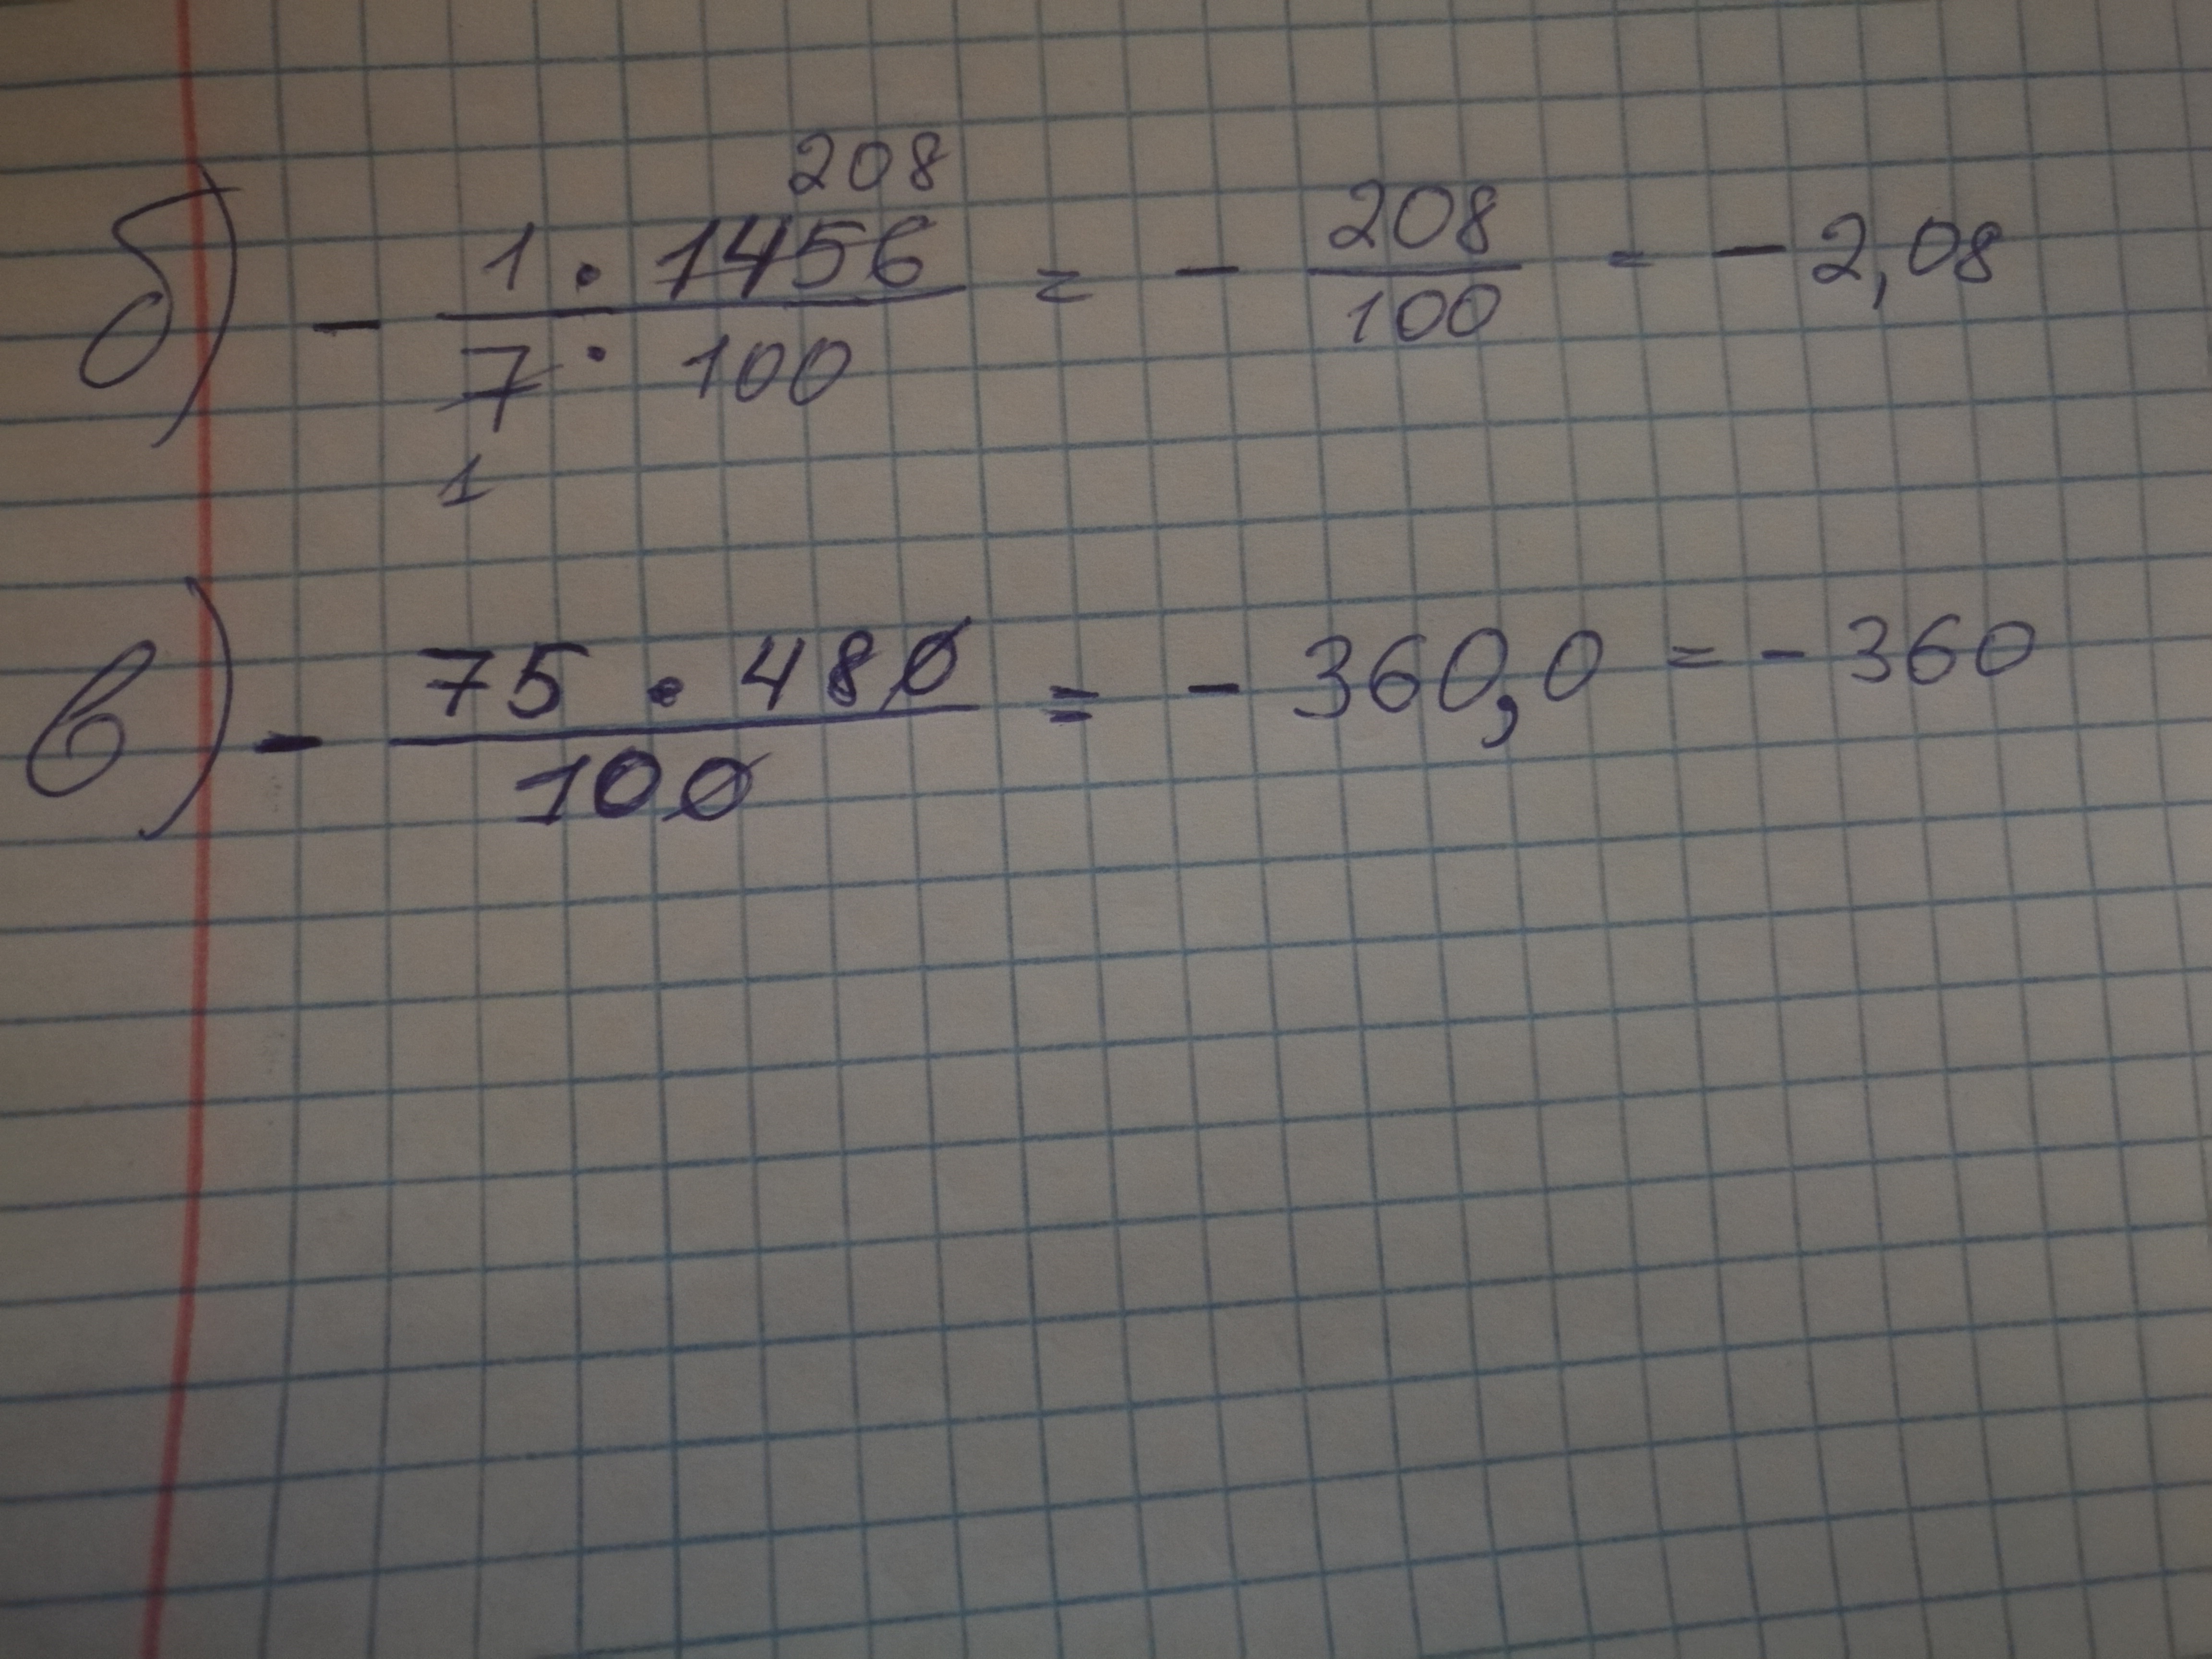 208
б) - 1 · 1456 / 7 · 100 = - 208 / 100 = - 2,08
1
в) - 75 · 480 / 100 = - 360,0 = - 360